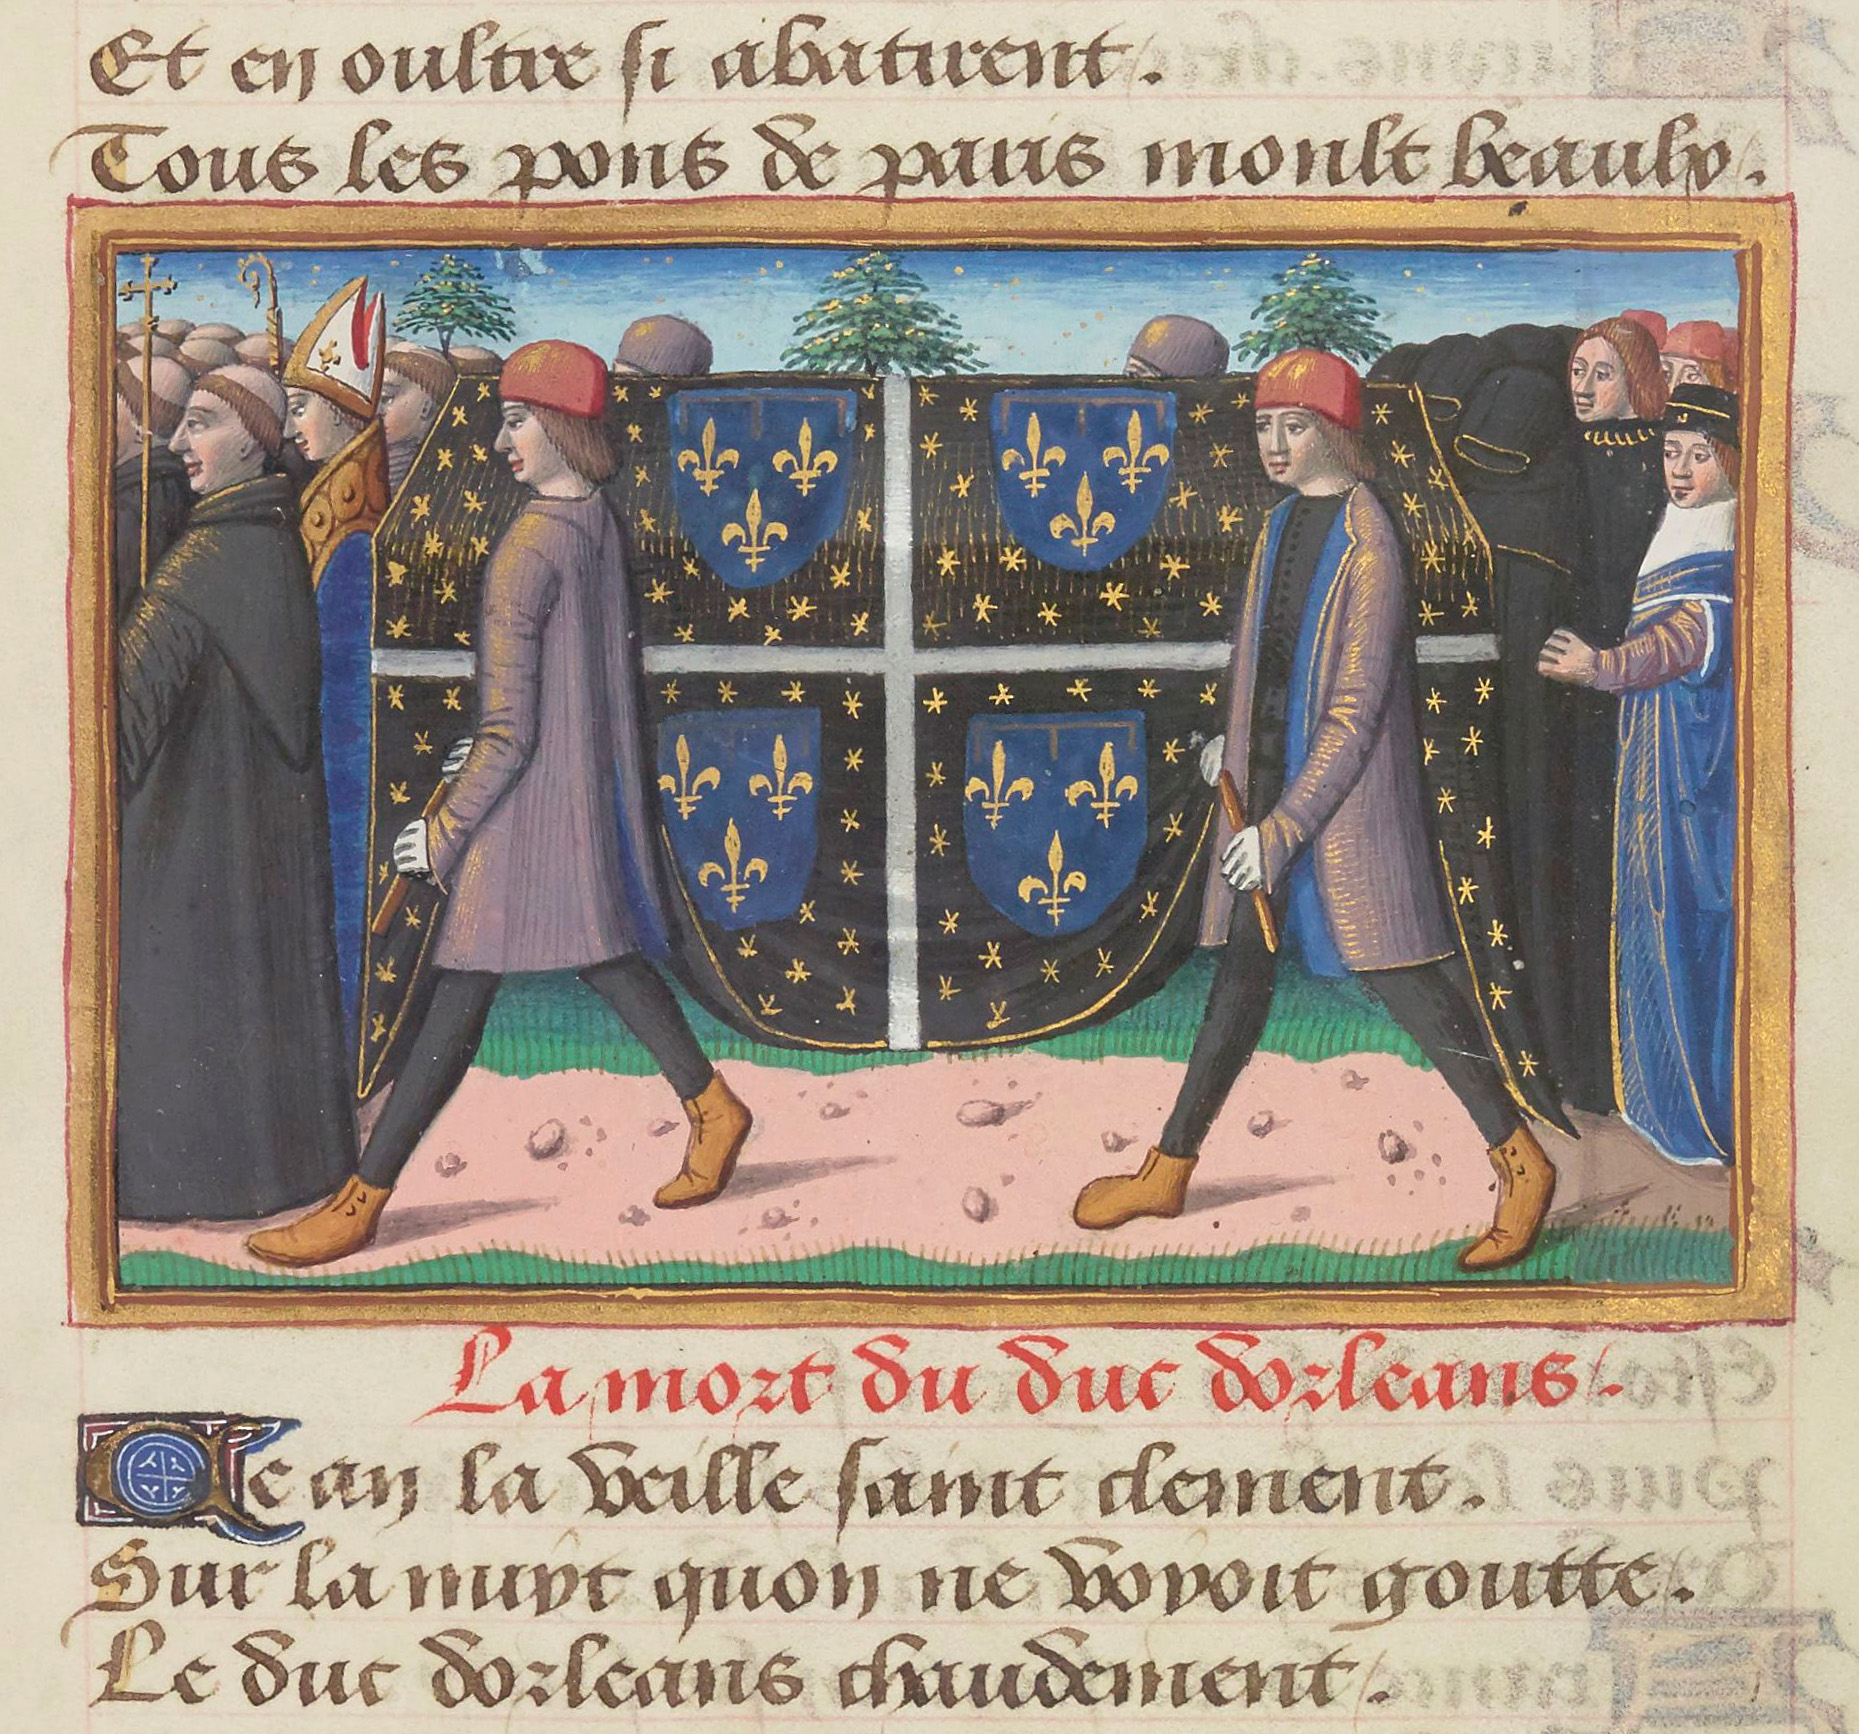 Et en oultre si abatirent.
Tous les pons de paris moult beaulx.
La mort du duc dorleans.
Ce an la veille saint clement.
Sur la nuyt quon ne voyoit goutte.
Le duc dorleans chaudement.